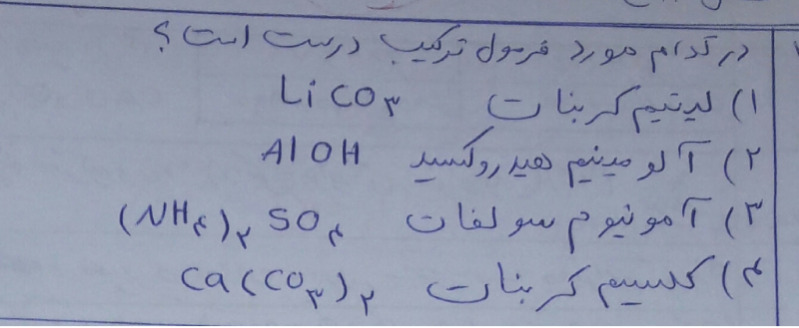 در کدام مورد فرمول ترکیب درست است؟
۱) لیتیم کربنات LiCO۳
۲) آلومینیم هیدروکسید AlOH
۳) آمونیوم سولفات (NH۴)۲ SO۴
۴) کلسیم کربنات Ca(CO۳)۲